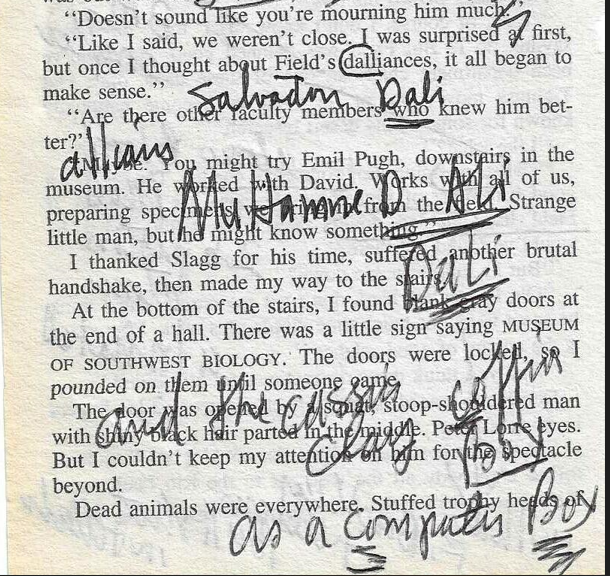 "Doesn't sound like you're mourning him much."
"Like I said, we weren't close. I was surprised at first,
but once I thought about Field's dalliances, it all began to
make sense."
Salvador Dali
"Are there other faculty members who knew him bet-
ter?"
You might try Emil Pugh, downstairs in the
museum. He worked with David. Works with all of us,
preparing specimens from the Strange
little man, but he might know something."
Dali
I thanked Slagg for his time, suffered another brutal
handshake, then made my way to the stairs.
At the bottom of the stairs, I found blank gray doors at
the end of a hall. There was a little sign saying MUSEUM
OF SOUTHWEST BIOLOGY. The doors were locked, so I
pounded on them until someone came.
and the coffin
The door was opened by a squat, stoop-shouldered man
with shiny black hair parted in the middle. Peter Lorre eyes.
Clay Box
But I couldn't keep my attention on him for the spectacle
beyond.
Dead animals were everywhere. Stuffed trophy heads of
as a computer Box